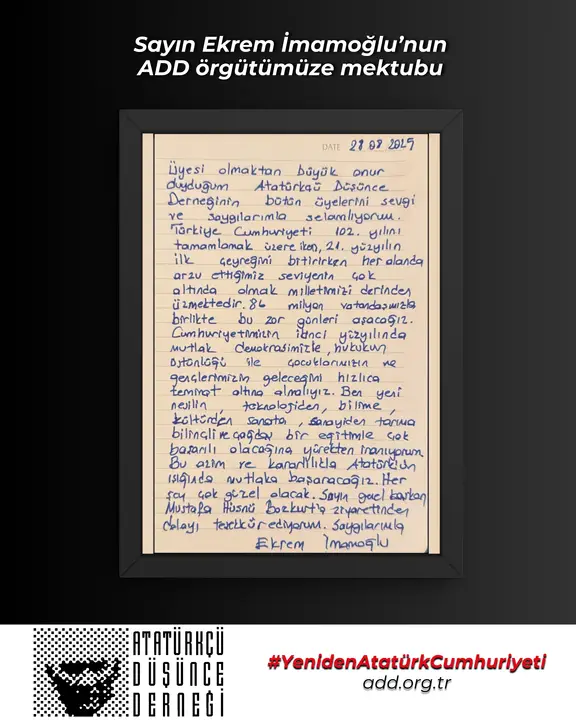 Sayın Ekrem İmamoğlu’nun
ADD örgütümüze mektubu
DATE 28 08 2025
Üyesi olmaktan büyük onur
duyduğum Atatürkçü Düşünce
Derneğinin bütün üyelerini sevgi
ve saygılarımla selamlıyorum.
Türkiye Cumhuriyeti 102. yılını
tamamlamak üzere iken, 21. yüzyılın
ilk çeyreğini bitirirken her alanda
arzu ettiğimiz seviyenin çok
altında olmak milletimizi derinden
üzmektedir. 86 milyon vatandaşımızla
birlikte bu zor günleri aşacağız.
Cumhuriyetimizin ikinci yüzyılında
mutlak demokrasimizle, hukukun
üstünlüğü ile çocuklarımızın ve
gençlerimizin geleceğini hızlıca
teminat altına almalıyız. Ben yeni
neslin, teknolojiden, bilime,
kültürden sanata, sanayiden tarıma
bilinçli ve çağdaş bir eğitimle çok
başarılı olacağına yürekten inanıyorum.
Bu azim ve kararlılıkla Atatürk'ün
ışığında mutlaka başaracağız. Her
şey çok güzel olacak. Sayın genel başkan
Mustafa Hüsnü Bozkurt'a ziyaretinden
dolayı teşekkür ediyorum. Saygılarımla
Ekrem İmamoğlu
ATATÜRKÇÜ
DÜŞÜNCE
DERNEĞİ
#YenidenAtatürkCumhuriyeti
add.org.tr